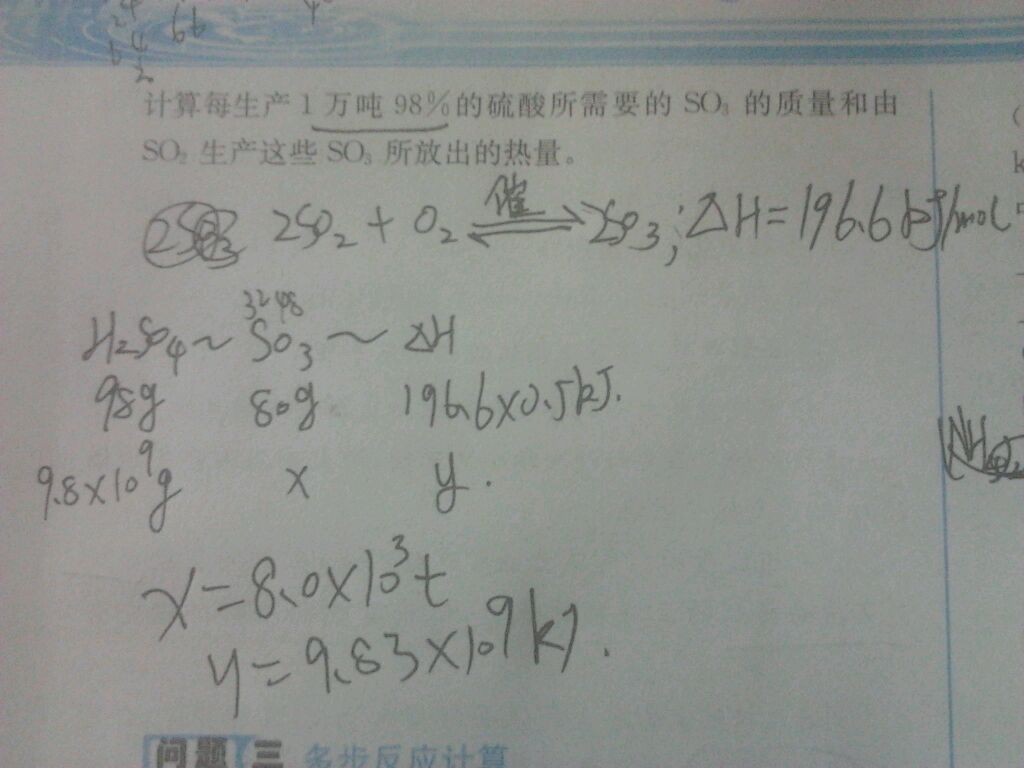 66
计算每生产1万吨98%的硫酸所需要的SO₃的质量和由
SO₂生产这些SO₃所放出的热量。
2SO₂ + O₂ ⇌ 2SO₃; ΔH = 196.6 kJ/mol
催
32 48
H₂SO₄ ~ SO₃ ~ ΔH
98g 80g 196.6×0.5kJ.
9.8×10⁹g x y.
x = 8.0×10³ t
y = 9.83×10⁹ kJ.
问题三 多步反应计算